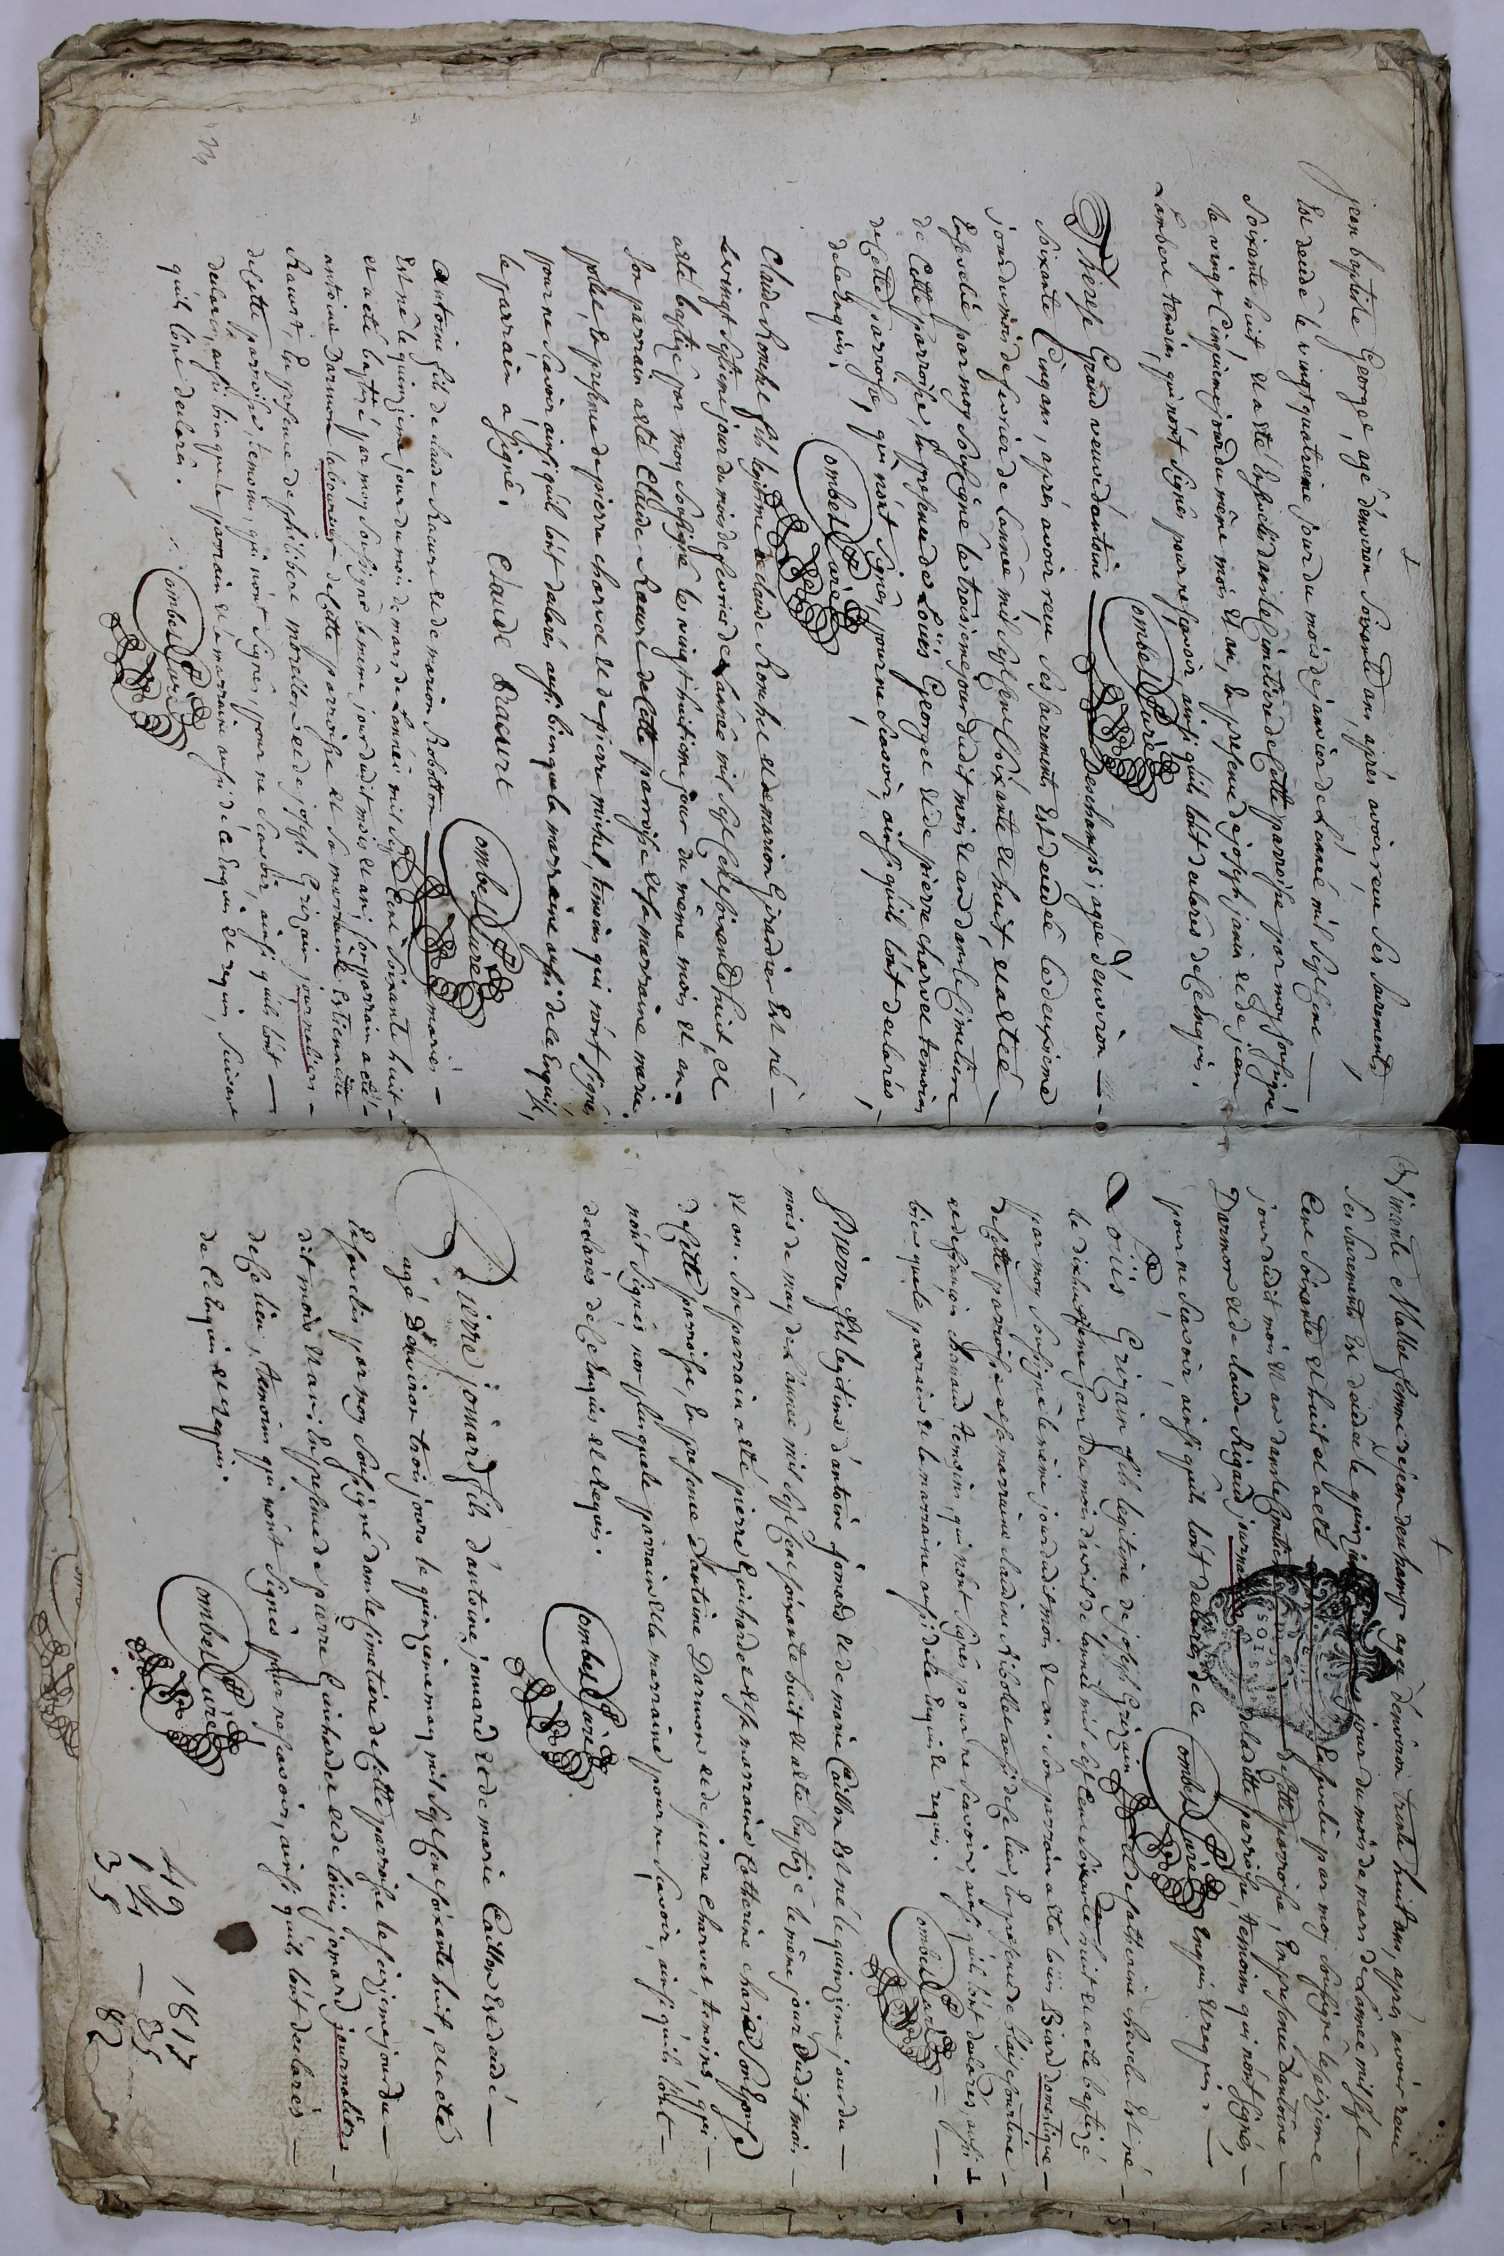 jean baptiste George, agé d'environ soixante ans, après avoir reçu ses sacrements,
Est decedé le vingt quatrieme jour du mois de janvier de L'année mil sept Cent
soixante huit, et a eté Ensevelis dans le Cimetiere de Cette parroisse par moy soussigné
le vingt Cinquieme jour du même mois et an, En presence de joseph janin et de jean
Lambert temoins, qui n'ont signés pour ne sçavoir ainsi qu'ils l'ont declarés de ce Enquis.
Combes Curé
Therese Grand veuve d'antoine Deschamps, agée d'environ
soixante Cinq ans, après avoir reçu ses sacrements Est decedée le deuxieme
jour du mois de fevrier de L'année mil sept Cent soixante et huit, et a eteé
Ensevelie par moy soussigné le troisieme jour dudit mois et an dans le Cimetiere
de Cette parroisse, En presence de Loüis George et de pierre Charvet temoins
de Cette parroisse, qui n'ont signés, pour ne sçavoir, ainsi qu'ils l'ont declarés
de ce Enquis.
Combes Curé
Claude fils legitime de Claude et de marion Girardier Est né
le vingt septieme jour du mois de fevrier de L'année mil sept Cent soixante huit, et
a eté baptizé par moy soussigné le vingt huitieme jour du même mois et an.
son parrain a eté Claude Racurt de Cette parroisse et sa marraine marie
En presence de pierre Charvet et de pierre michel, temoins qui n'ont signé,
pour ne sçavoir ainsi qu'il l'ont declarés aussi bien que la marraine aussi de ce Enquis,
le parrain a signé.
Claude Racurt
Combes Curé
Antoine fils de Claude Racurt et de marion Robotton mariés
Est né le quinzieme jour du mois de mars de L'année mil sept Cent soixante huit
et a eté baptizé par moy soussigné le même jour dudit mois et an; son parrain a eté
antoine Darmon laboureur de Cette parroisse et sa marraine Estiennette
Racurt, En presence de philibert morellon et de joseph Grizain journaliers
de Cette parroisse, temoins, qui n'ont signés, pour ne sçavoir, ainsi qu'ils l'ont
declarés, aussi bien que le parrain et la marraine aussi de ce Enquis et requis, suivant
qu'ils l'ont declarés.
Combes Curé
femme de jean deschamps agée d'environ trente huit ans, après avoir reçu
ses sacrements Est decedée le quinzieme jour du mois de mars de L'année mil sept
Cent soixante et huit et a eté Ensevelie par moy soussigné le seizieme
jour dudit mois et an dans le Cimetiere de Cette parroisse, En presence d'antoine
Darmon et de Claude Rigaud journaliers de laditte parroisse, temoins qui n'ont signés
pour ne sçavoir ainsi qu'ils l'ont declarés de ce Enquis et requis.
Combes Curé
Loüis Grizain fils legitime de joseph Grizain et de Catherine Est né
le dixhuitieme jour du mois d'avril de L'année mil sept Cent soixante huit et a eté baptizé
par moy soussigné le même jour dudit mois et an. son parrain a eté Loüis Biard domestique
de Cette parroisse et sa marraine Claudine aussi de Ce lieu, En presence de
et de temoins, qui n'ont signés pour ne sçavoir, ainsi qu'ils l'ont declarés, aussi
bien que le parrain et la marraine aussi de ce Enquis et requis.
Combes Curé
Pierre fils legitime d'antoine jomard et de marie Caillon Est né le quinzieme jour du
mois de may de L'année mil sept Cent soixante huit et a eté baptizé le même jour dudit mois
et an. son parrain a eté pierre Guichardet et sa marraine Catherine
de Cette parroisse, En presence d'antoine Darmon et de pierre Charvet, temoins, qui
n'ont signés non plus que le parrain et la marraine pour ne sçavoir, ainsi qu'ils l'ont
declarés de ce Enquis et Requis.
Combes Curé
Pierre jomard fils d'antoine jomard et de marie Caillon Est decedé
agé D'environ trois jours le quinzieme may mil sept Cent soixante huit, et a eté
Ensevelis par moy soussigné dans le Cimetiere de Cette parroisse le seizieme jour du
dit mois et an. En presence de pierre Guichardet et de Loüis jomard journaliers
de Ce lieu, temoins qui n'ont signés pour ne sçavoir, ainsi qu'ils l'ont declarés
de Ce Enquis et requis.
Combes Curé
1817
35
82